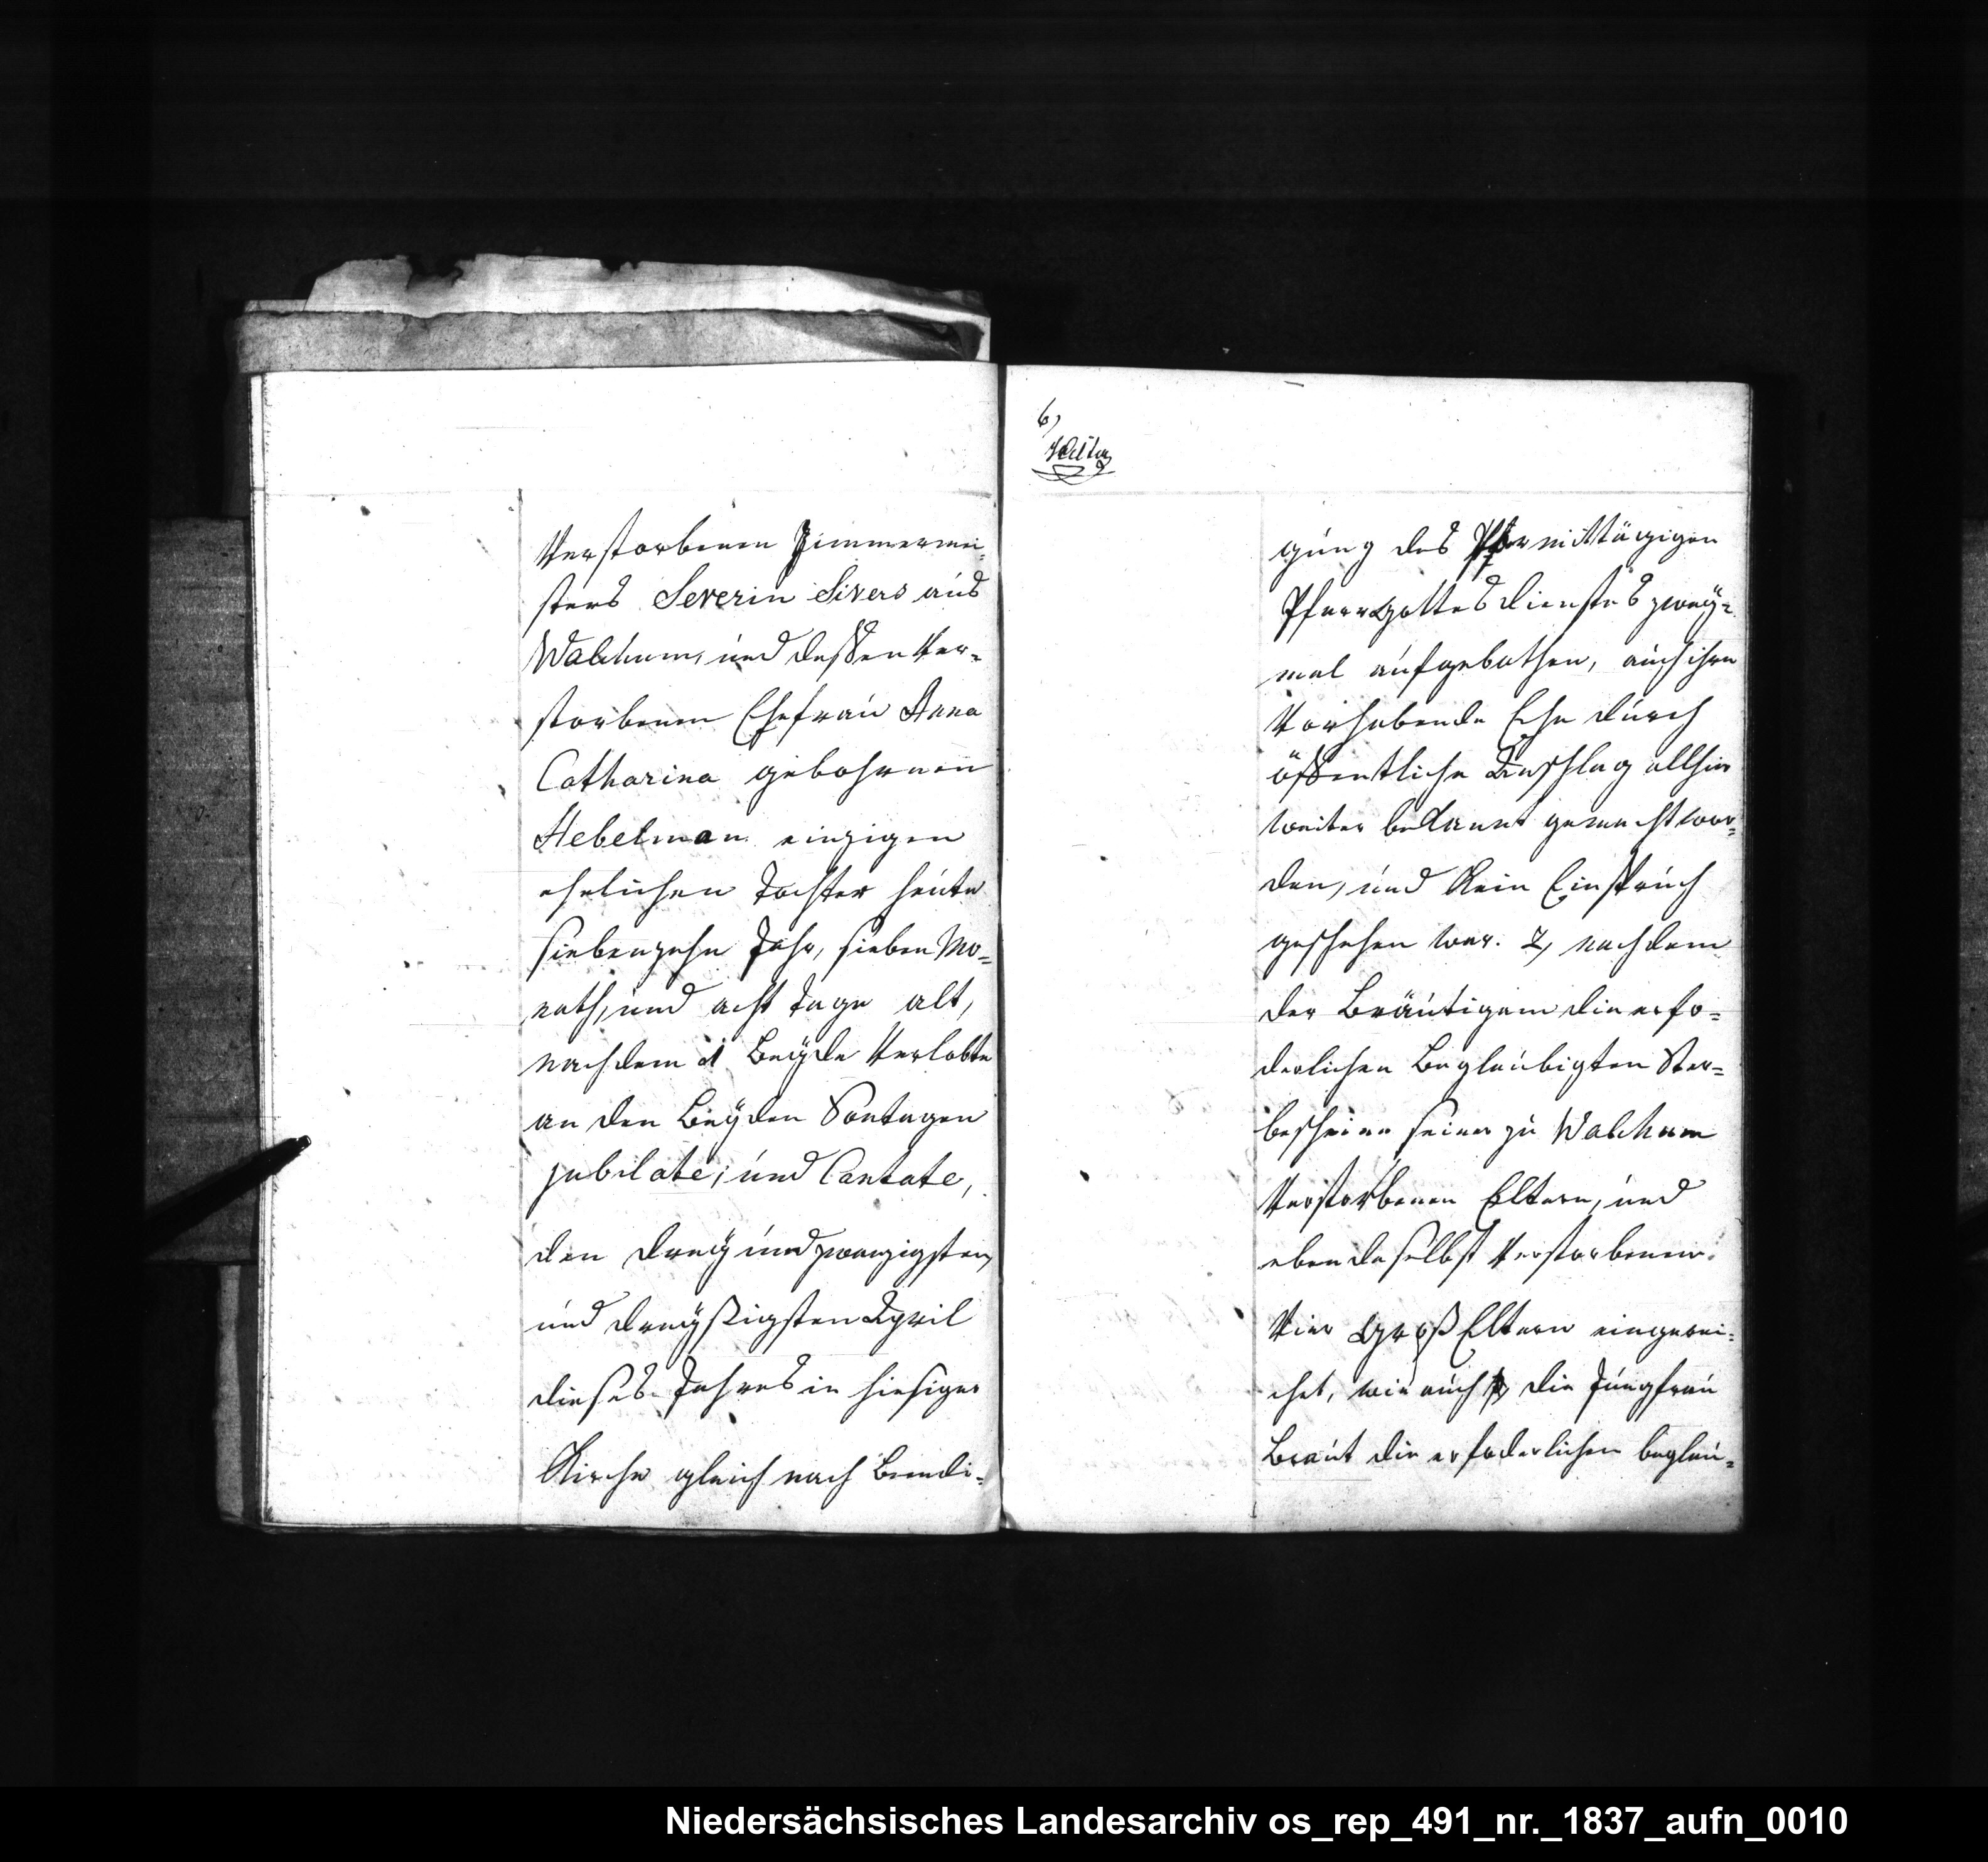 Verstorbenen Zimmermei-
sters Severin Sivers aus
Walchum, und deßen Ver-
storbenen Ehefrau Anna
Catharina gebohrnen
Hebelman einzigen
ehelichen Tochter heute
siebenzehn Jahr, sieben Mo-
nath, und acht Tage alt,
nachdem 1 Beyde Verlobte
an den Beyden Sontagen
jubilate, und Cantate,
den drey und zwanzigsten
und dreyßigsten April
dieses Jahres in hiesiger
Kirche gleich nach Beendi-
6)
gung des Vormittägigen
Pfarrgottesdienstes zwey-
mal aufgebothen, auch ihre
Vorhabende Ehe durch
öffentliche Anschlag allhier
weiter bekannt gemacht wor-
den, und Kein Einspruch
geschehen war. 2, nachdem
der Bräutigam die erfo-
derlichen Beglaubigten Ster-
bescheine seiner zu Walchum
Verstorbenen Eltern, und
ebendaselbst Verstorbenen
Vier Groß Eltern eingerei-
chet, wie auch die Jungfrau
Braut die erfoderlichen beglau-
Niedersächsisches Landesarchiv os_rep_491_nr._1837_aufn_0010